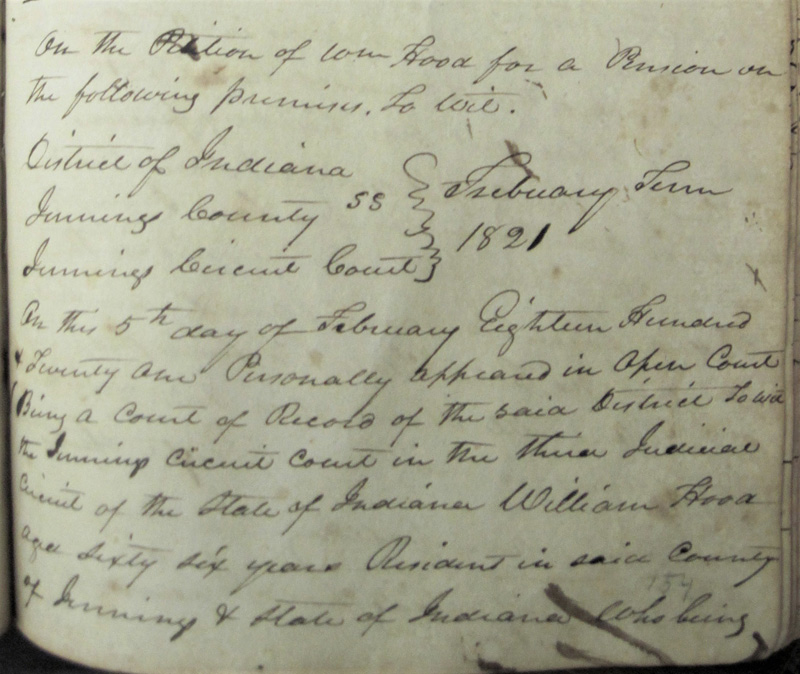 On the Petition of Wm Hood for a Pension on
the following premises. To Wit.
District of Indiana
Jennings County SS } February Term
1821
Jennings Circuit Court }
On this 5th day of February Eighteen Hundred
& Twenty One Personally appeared in Open Court
(Being a Court of Record of the said District Towit
the Jennings Circuit Court in the third Judicial
Circuit of the State of Indiana William Hood
aged Sixty six years Resident in said County
154
of Jennings & State of Indiana Who being